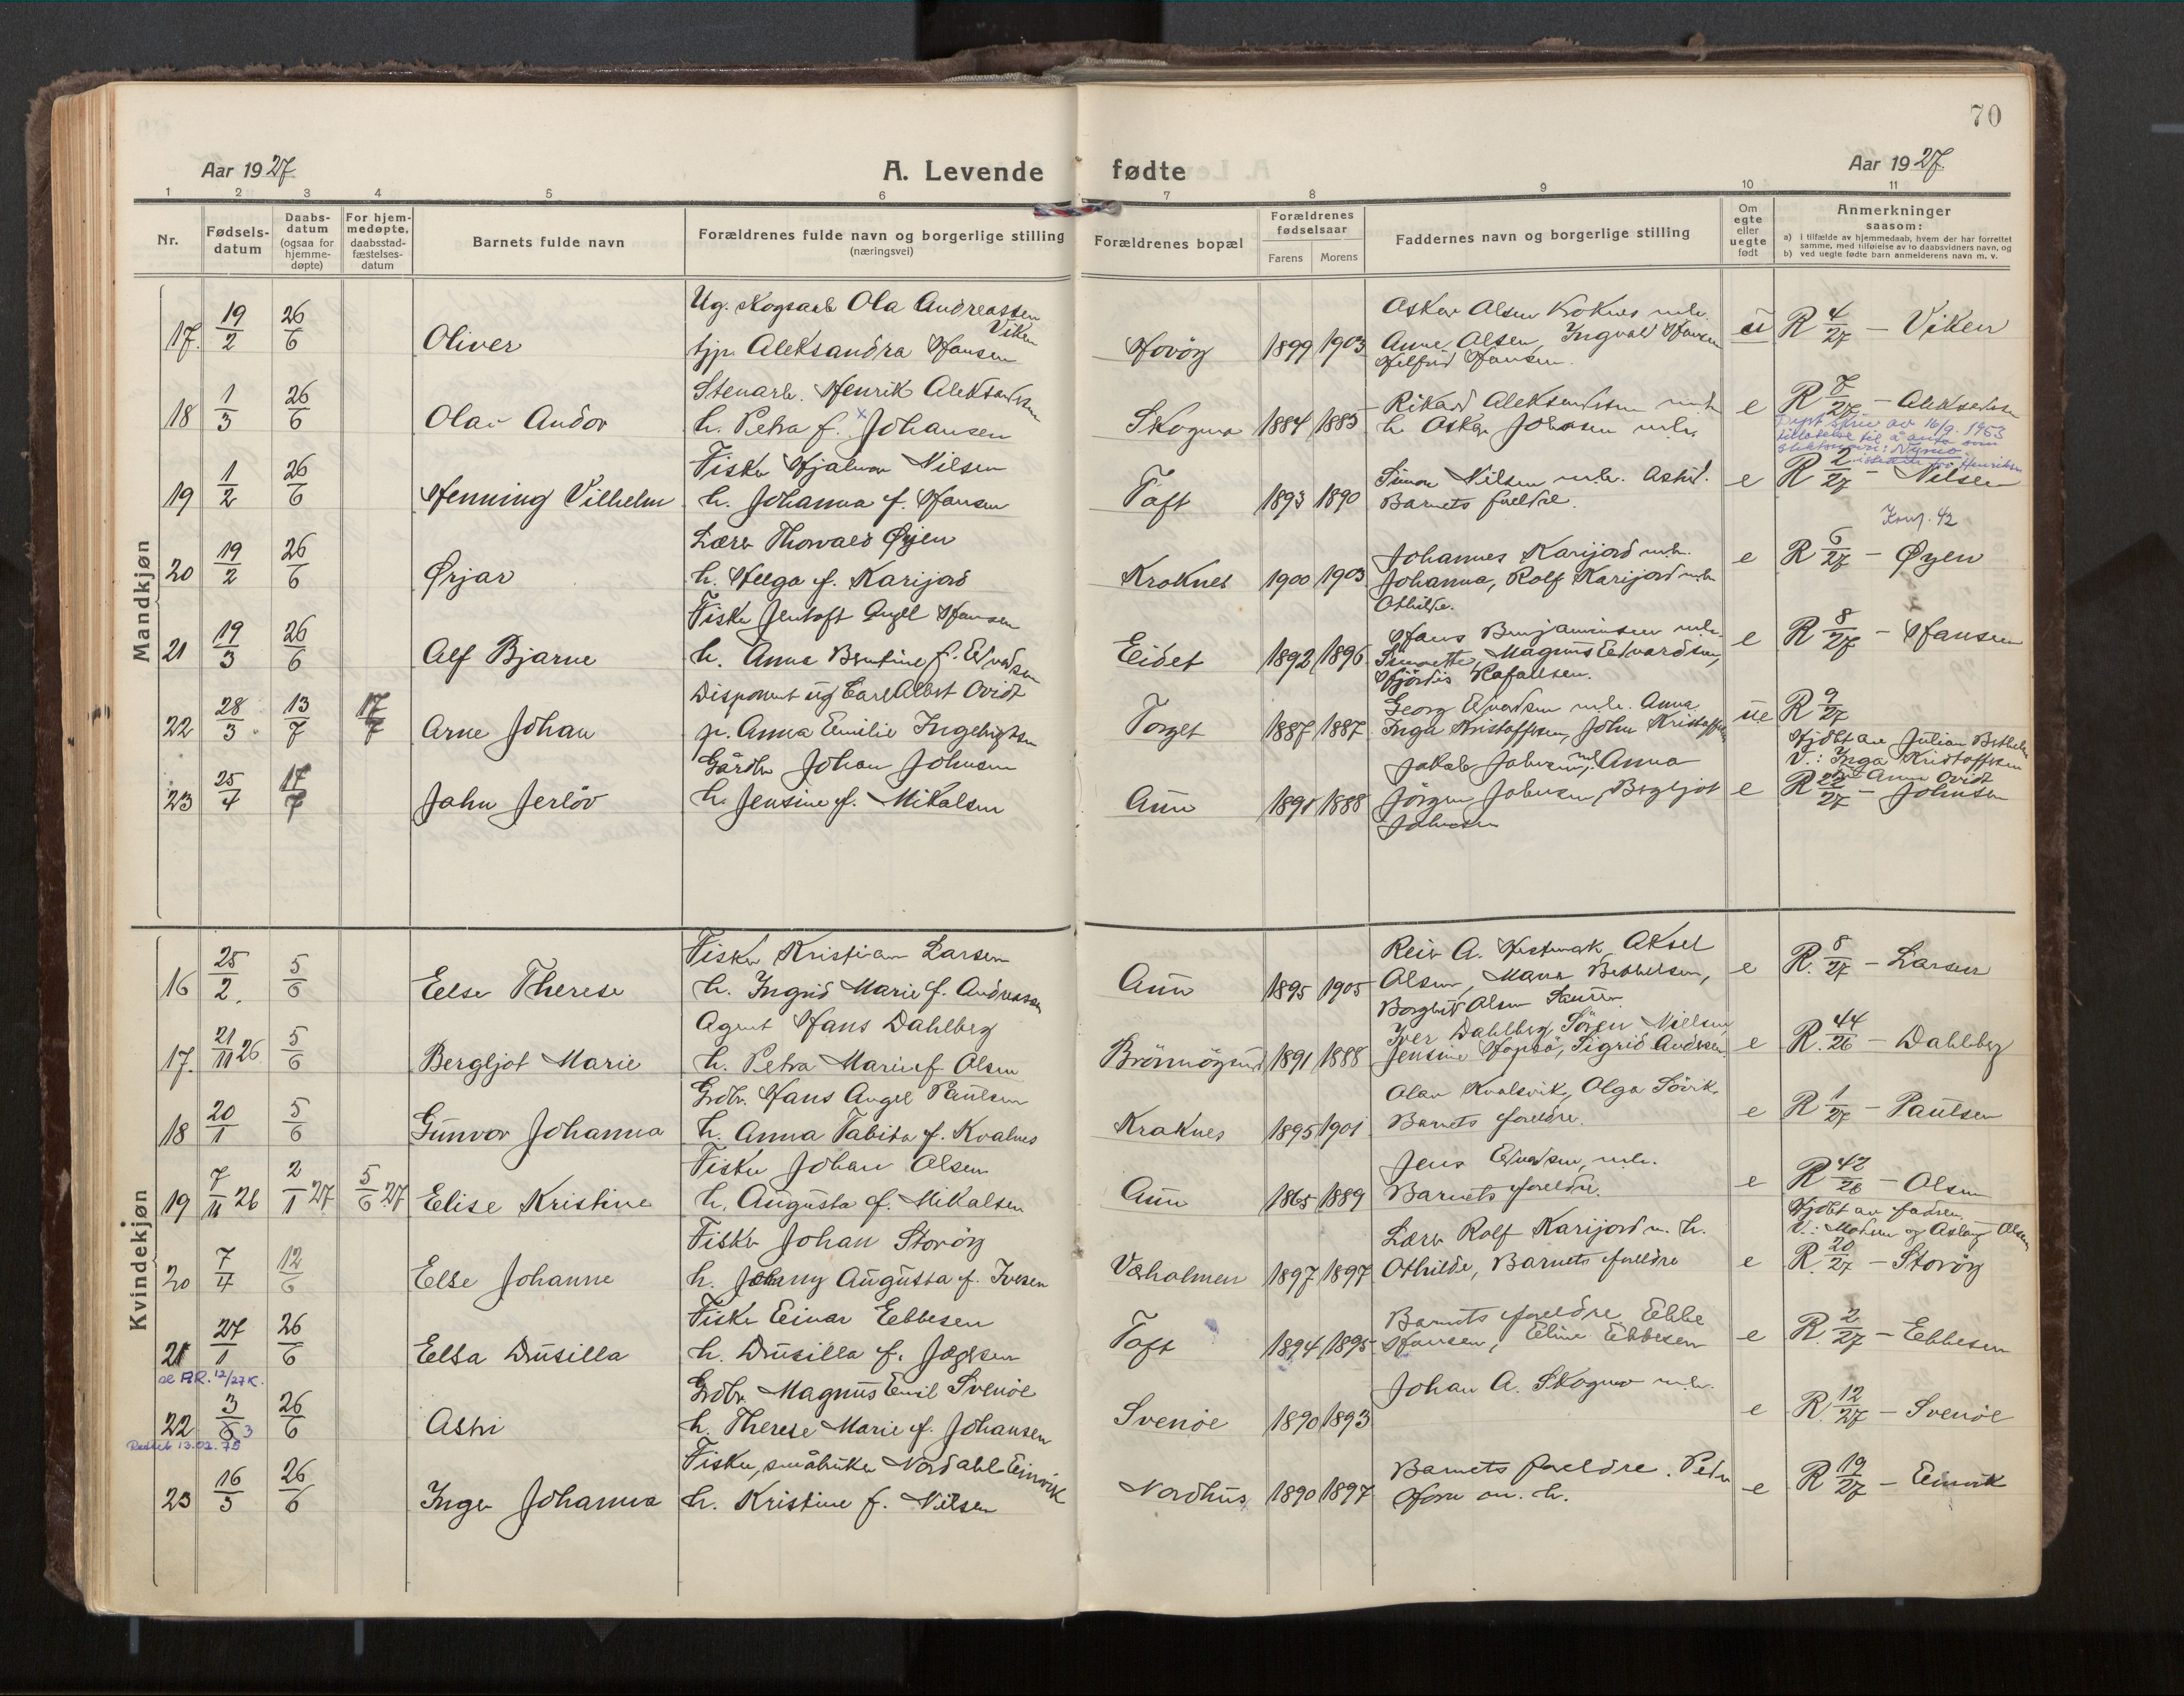 70
Aar 1927
A. Levende fødte
Aar 1927
1 2 3 4 5 6 7 8 9 10 11
Nr.
Fødsels-
datum
Daabs-
datum
(ogsaa for
hjemme-
døpte)
For hjem-
medøpte,
daabsstad-
fæstelses-
datum
Barnets fulde navn
Forældrenes fulde navn og borgerlige stilling
(næringsvei)
Forældrenes bopæl
Forældrenes
fødselsaar
Farens Morens
Faddernes navn og borgerlige stilling
Om
egte
eller
uegte
født
Anmerkninger
saasom:
a) i tilfælde av hjemmedaab, hvem der har forrettet
samme, med tilføielse av to daabsvidners navn, og
b) ved uegte fødte barn anmelderens navn m. v.
Mandkjøn
17. 19/2 26/6 Oliver
Ug. Skogsarb Ola Andreassen
Viken
tjp. Aleksandra Hansen
Horöy 1899 1903
Oskar Olsen Kroknes m.h.
Anna Olsen, Ingvald Hansen
Hilfrid Hansen.
u R 4/27 - Viken
18 1/3 26/6 Olav Andor
Stenarb. Henrik Aleksandersen
h. Petra f. x Johansen
Skogmo 1884 1885
Rikard Aleksandersen m.h.
h Oskar Johansen m.h.
e R 7/27 - Aleksandersen
av 16/9. 1953
tillatelse til å anta som
slektsnavn: Nymo
istedenfor Henriksen
19 1/2 26/6 Henning Vilhelm
Fisker Hjalmar Nilsen
h. Johanna f. Hansen
Toft 1893 1890
Simon Nilsen m.h. Astrid.
Barnets foreldre.
e R 2/27 - Nilsen
20 19/2 26/6 Ørjar
Lærer Thorvald Øyen
h. Helga f. Karijord
Kroknes 1900 1903
Johannes Karijord m.h.
Johanna, Rolf Karijord m.h.
Othilde.
e R 6/27 - Øyen
Konf. 42
21 19/3 26/6 Alf Bjarne
Fisker Jentoft Angel Hansen
h. Anna Bentine f. Edvardsen
Eidet 1892 1896
Hans Benjaminsen m.h.
Simonette, Magnus Edvardsen,
Hjördis Rafaelsen.
e R 8/27 - Hansen
22 28/3 13/7 17/7 Arne Johan
Disponent ug Carl Albert Ovidt
p. Anna Emilie Ingebrigtsen
Torget 1887 1887
Georg Edvardsen m.h. Anna.
Inga Kristoffersen, John Kristoffersen
ue R 9/27
Hjdbt av Julian Berthelsen
V.: Inga Kristoffersen
Anna Ovidt
23 25/4 17/7 Jahn Jerlöv
Gårdbr Johan Johnsen
h. Jensine f. Mikalsen
Aun 1891 1888
Jakob Johnsen m.h. Anna
Jörgen Johnsen, Bergljot
Johnsen
e R 22/27 - Johnsen
Kvindekjøn
16 25/2. 5/6 Else Therese
Fisker Kristian Larsen
h. Ingrid Marie f. Andreassen
Aun 1895 1905
Reier A. Hestmark, Aksel
Olsen, Maria Berthelsen,
Borghild Olsen Sauren
e R. 8/27 - Larsen
17. 21/11 26 5/6 Bergljot Marie
Agent Hans Dahlberg
h. Petra Marie f. Olsen
Brönnöysund 1891 1888
Iver Dahlberg, Sören Nielsen
Jensine Hopsö, Sigrid Andersen
e R. 44/26 - Dahlberg
18 20/1 5/6 Gunvor Johanna
Grdbr. Hans Angel Paulsen
h. Anna Tabita f. Kvalnes
Kroknes 1895 1901
Olav Kvalsvik, Olga Sövik.
Barnets foreldre.
e R 1/27 - Paulsen
19 7/11 26 2/1 27 5/6 27 Elise Kristine
Fisker Johan Olsen
h. Augusta f. Mikalsen
Aun 1865 1889
Jens Edvardsen, m.h.
Barnets foreldre.
e R 42/26 - Olsen
Hjdbt av fadren.
V.: Modren og Aslaug Olsen
20 7/4 12/6 Else Johanne
Fisker Johan Storöy
h. Jenny Augusta f. Ivesen
Væholmen 1897 1897
Lærer Rolf Karijord m. h.
Othilde, Barnets foreldre
e R. 20/27 - Storöy
21 27/1 26/6 Elsa Drusilla
Fisker Einar Ebbesen
h. Drusilla f. Jægtsen
Toft 1894 1895
Barnets foreldre, Ebbe
Hansen, Eline Ebbesen
e R. 2/27 - Ebbesen
se FR. 12/27 K.
22 3/6 3 26/6 Astri
Grdbr. Magnus Emil Svenöe
h. Therese Marie f. Johansen
Svenöe 1890 1893
Johan A. Skogmo m.h.
e R. 12/27 - Svenöe
13.02.75
23 16/3 26/6 Inger Johanna
Fisker, småbruker Nordahl Einvik
h. Kristine f. Nilsen
Nordhus 1890 1897
Barnets foreldre. Peder
Horn m. h.
e R 19/27 - Einvik